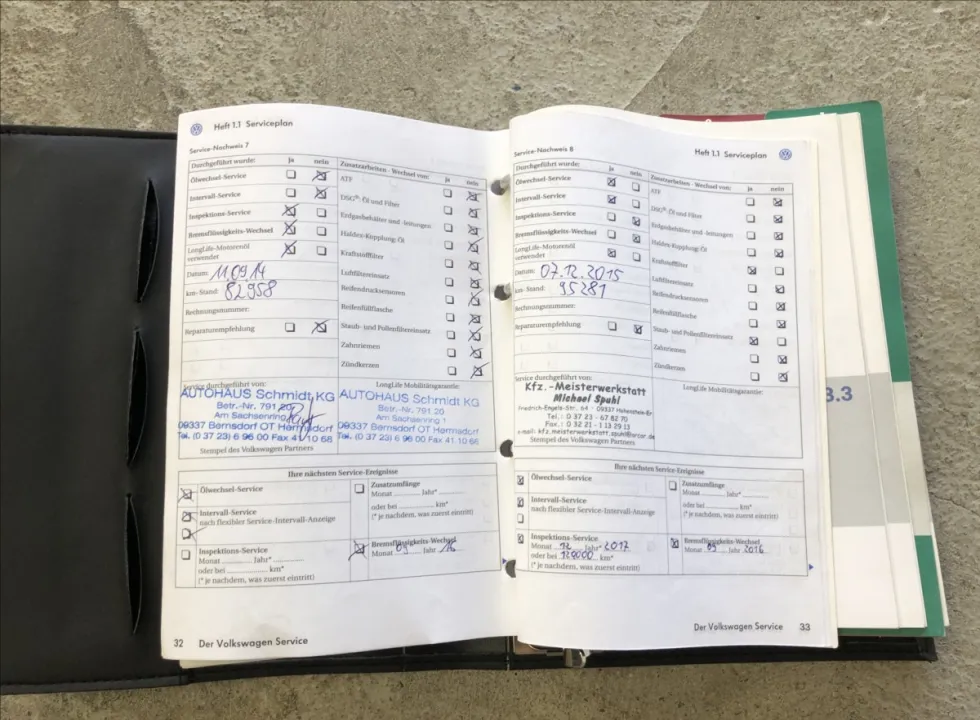 Heft 1.1 Serviceplan
Service-Nachweis 7
Durchgeführt wurde: Ja nein
Ölwechsel-Service
Intervall-Service
Inspektions-Service
Bremsflüssigkeits-Wechsel
LongLife-Motorenöl
verwendet
Datum: 11.09.14
km-Stand: 82958
Rechnungsnummer:
Reparaturempfehlung
Zusatzarbeiten - Wechsel von: ja nein
ATF
DSG®: Öl und Filter
Erdgasbehälter und -leitungen
Haldex-Kupplung: Öl
Kraftstofffilter
Luftfiltereinsatz
Reifendrucksensoren
Reifenfüllflasche
Staub- und Pollenfiltereinsatz
Zahnriemen
Zündkerzen
Service durchgeführt von:
AUTOHAUS Schmidt KG
Betr.-Nr. 791 20
Am Sachsenring
09337 Bernsdorf OT Hermsdorf
Tel. (0 37 23) 6 96 00 Fax 41 10 68
Stempel des Volkswagen Partners
LongLife Mobilitätsgarantie:
AUTOHAUS Schmidt KG
Betr.-Nr. 791 20
Am Sachsenring 1
09337 Bernsdorf OT Hermsdorf
Tel. (0 37 23) 6 96 00 Fax 41 10 68
Ihre nächsten Service-Ereignisse
Ölwechsel-Service
Intervall-Service
nach flexibler Service-Intervall-Anzeige
Inspektions-Service
Monat Jahr*
oder bei km*
(* je nachdem, was zuerst eintritt)
Zusatzumfänge
Monat Jahr*
oder bei km*
(* je nachdem, was zuerst eintritt)
Bremsflüssigkeits-Wechsel
Monat 09 Jahr 16
32 Der Volkswagen Service
Heft 1.1 Serviceplan
Service-Nachweis 8
Durchgeführt wurde: ja nein
Ölwechsel-Service
Intervall-Service
Inspektions-Service
Bremsflüssigkeits-Wechsel
LongLife-Motorenöl
verwendet
Datum: 07.12.2015
km-Stand: 95281
Rechnungsnummer:
Reparaturempfehlung
Zusatzarbeiten - Wechsel von: ja nein
ATF
DSG®: Öl und Filter
Erdgasbehälter und -leitungen
Haldex-Kupplung: Öl
Kraftstofffilter
Luftfiltereinsatz
Reifendrucksensoren
Reifenfüllflasche
Staub- und Pollenfiltereinsatz
Zahnriemen
Zündkerzen
Service durchgeführt von:
Kfz.-Meisterwerkstatt
Michael Spuhl
Friedrich-Engels-Str. 64 · 09337 Hohenstein-Er
Tel.: 0 37 23 - 67 82 70
Fax.: 0 32 21 - 1 13 29 13
e-mail: kfz.meisterwerkstatt.spuhl@arcor.de
Stempel des Volkswagen Partners
LongLife Mobilitätsgarantie:
Ihre nächsten Service-Ereignisse
Ölwechsel-Service
Intervall-Service
nach flexibler Service-Intervall-Anzeige
Inspektions-Service
Monat 12 Jahr* 2017
oder bei 120000 km*
(* je nachdem, was zuerst eintritt)
Zusatzumfänge
Monat Jahr*
oder bei km*
(* je nachdem, was zuerst eintritt)
Bremsflüssigkeits-Wechsel
Monat 09 Jahr 2016
Der Volkswagen Service 33
3.3